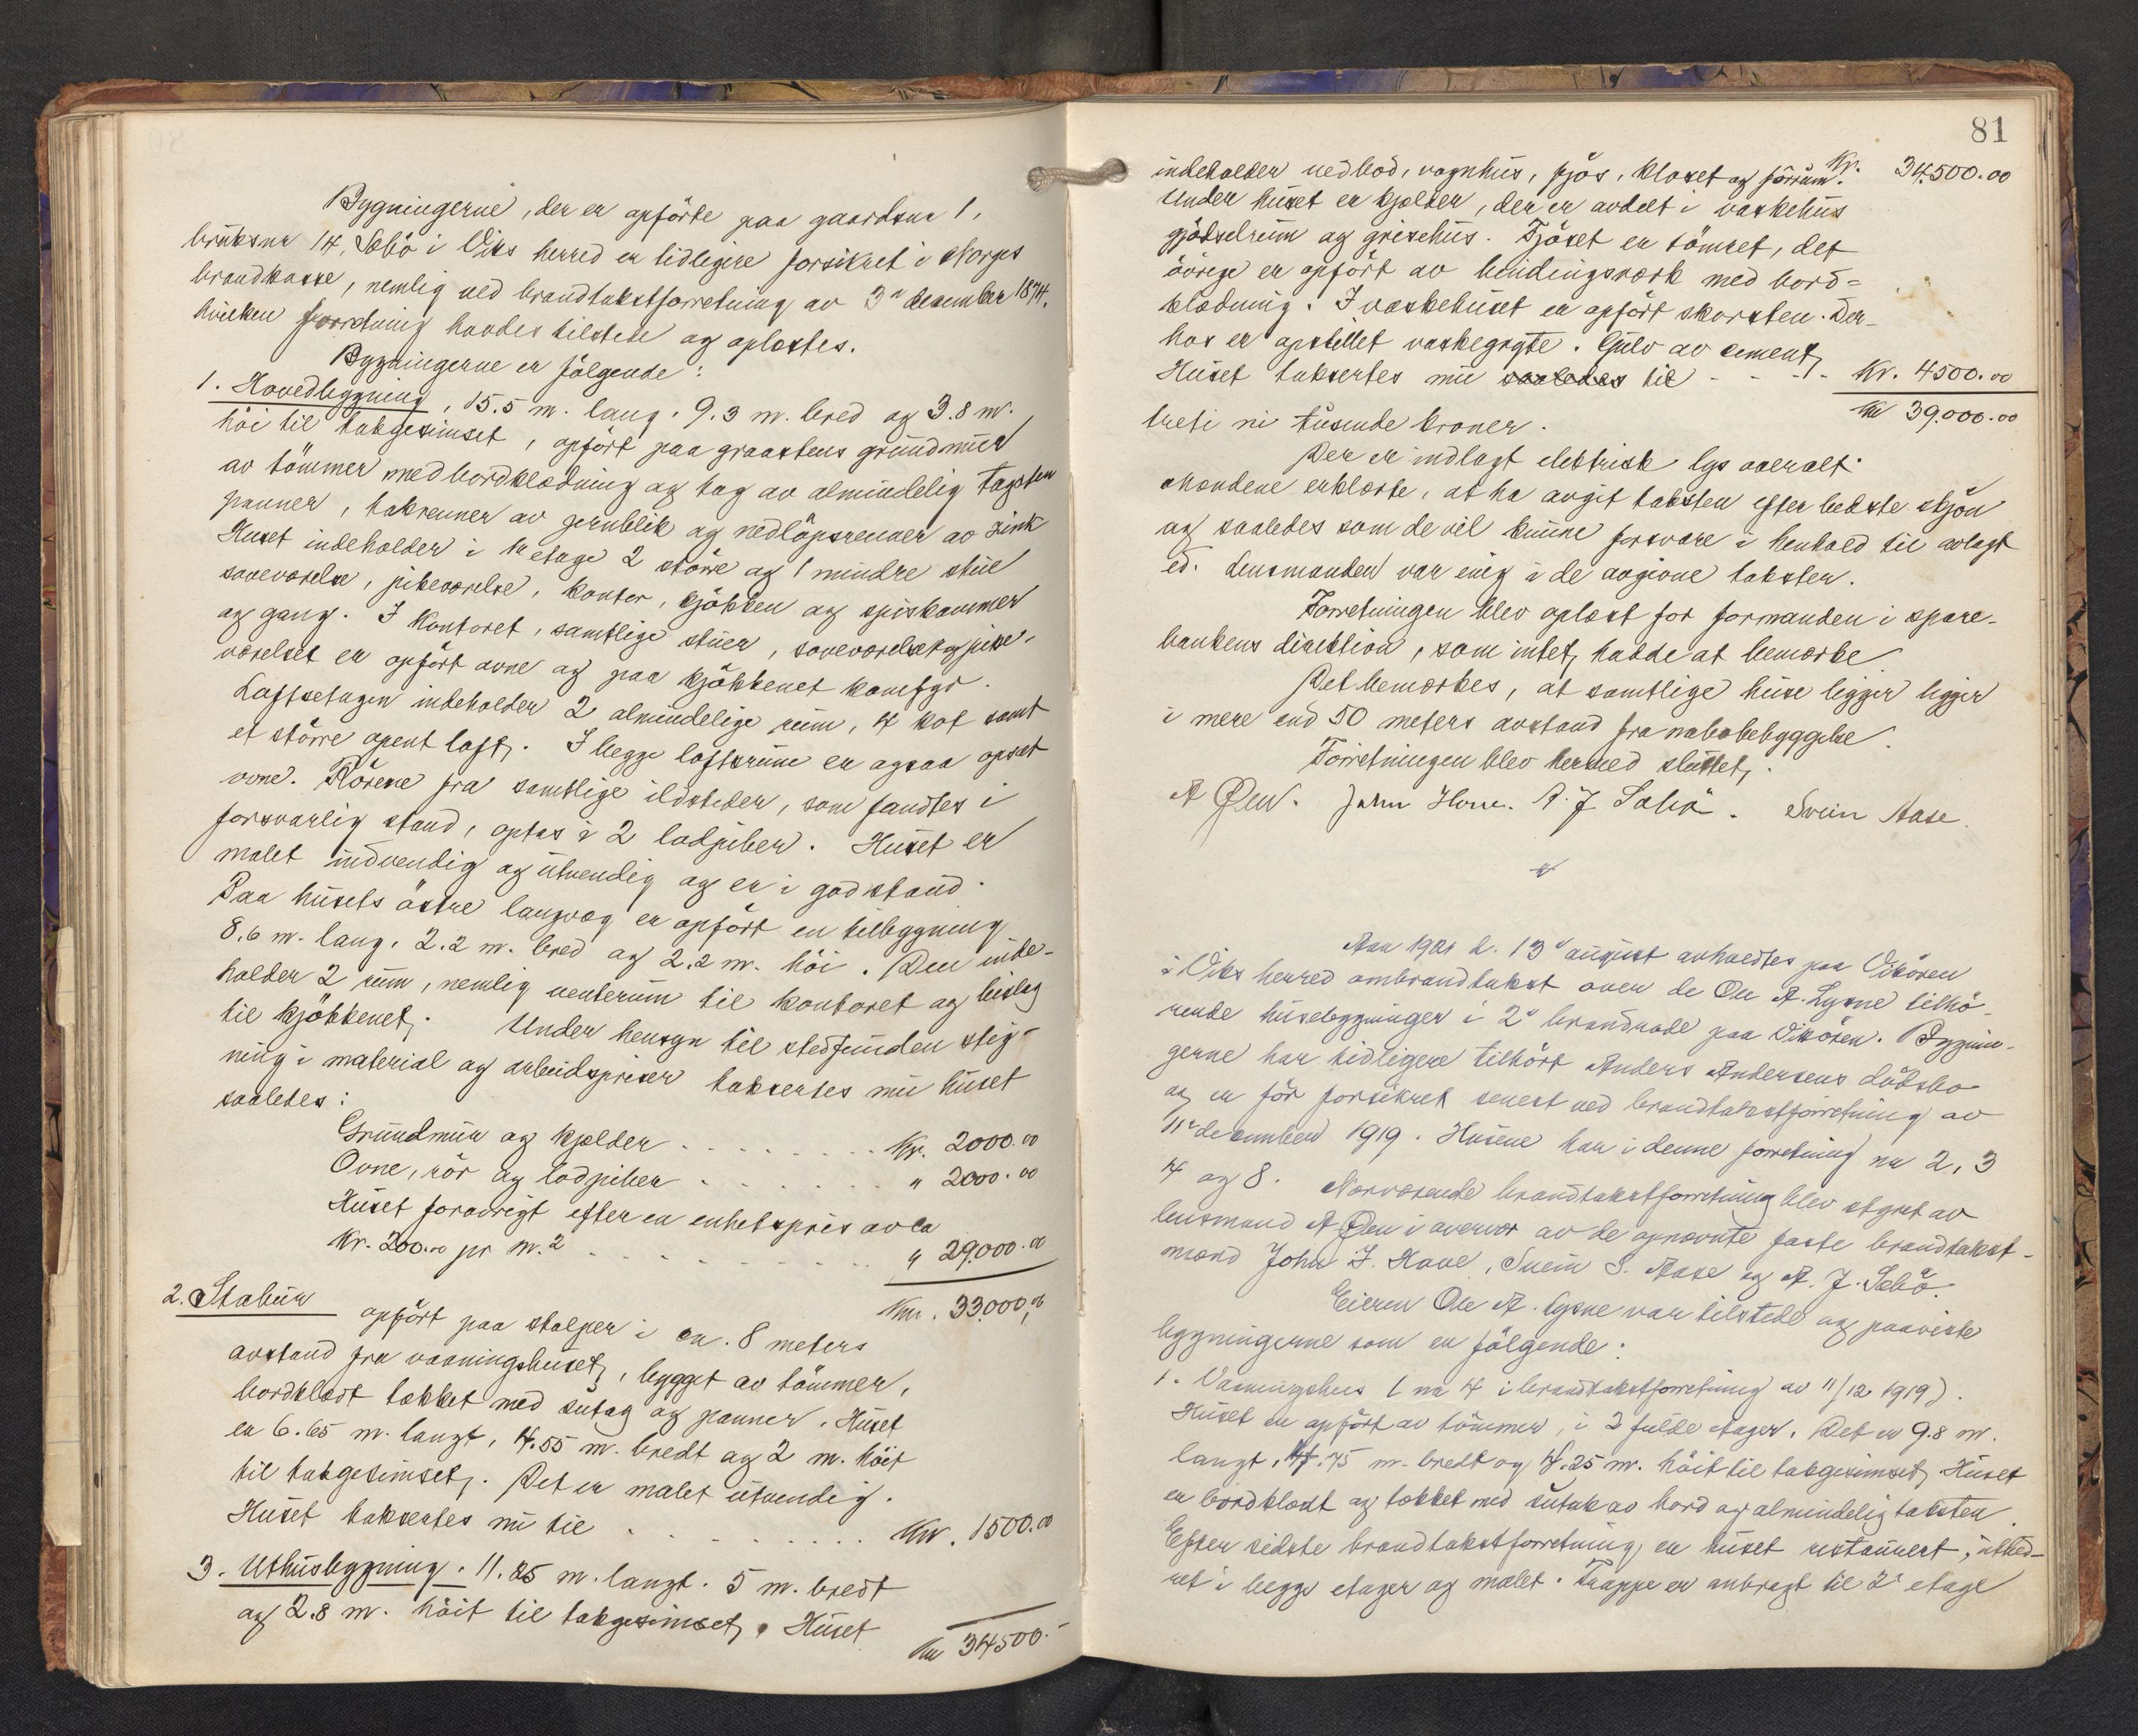 Bygningerne, der er opförte paa gaardsnr 1,
bruksnr 14, Sæbö i Viks herred er tidligere forsikret i Norges
brandkasse, nemlig ved brandtakstforretning av 3e december 1874.
hvilken forretning havdes tilstede og oplæstes.
Bygningerne er fölgende:
1. Hovedbygning, 15.5 m. lang. 9.3 m. bred og 3.8 m.
höi til takgesimset, opfört paa graastens grundmur
av tömmer med bordklædning og tag av almindelig tagsten
panner, takrenner av jernblik og nedlöpsrenner av zink
Huset indeholder i 1e etage 2 större og 1 mindre stue
soveværelse, pikeværelse, kontor, kjökken og spiskammer
og gang. I kontoret, samtlige stuer, soveværelset og pike-
værelset er opfört ovne og paa kjökkenet komfyr.
Loftsetagen indeholder 2 almindelige rum, 4 kot samt
et större apent loft. I begge loftsrum er ogsaa opsat
ovne. Rörene fra samtlige ildsteder, som fandtes i
forsvarlig stand, optas i 2 lodpiber. Huset er
malet indvendig og utvendig og er i god stand.
Paa husets östre langvæg er opfört en tilbygning
8.6 m. lang. 2.2 m. bred og 2.2 m. höi. Den inde-
holder 2 rum, nemlig venterum til kontoret og bislag
til kjökkenet. Under hensyn til stedfunden stig-
ning i material og arbeidspriser taksertes nu huset
saaledes:
Grundmur og kjelder . . . . . . . Kr. 2000.00
Ovne, rör og lodpiber . . . . . . . " 2000.00
Huset forövrigt efter en enhetspris av ca
Kr. 200.00 pr m.2 . . . . . . . . . " 29000.00
Kr. 33.000,00
2. Stabur opfört paa stolper i ca. 8 meters
avstand fra vaaningshuset, bygget av tömmer,
bordklædt tækket med sutag og panner. Huset
er 6.65 m. langt, 4.55 m. bredt og 2 m. höit
til takgesimset. Det er malet utvendig.
Huset taksertes nu til . . . . . . . . . Kr. 1500.00
3. Uthusbygning. 11.85 m. langt. 5 m. bredt
og 2.8 m. höit til takgesimset. Huset
Kr 34500.-
81
Kr. 34500.00
indeholder vedbod, vognhus, fjös, kloset og förrum.
Under huset er kjelder, der er avdelt i vaskehus
gjödselrum og grisehus. Fjöset er tömret, det
övrige er opfört av bindingsværk med bord-
klædning. I vaskehuset er opfört skorsten. Der-
hos er opstillet vaskegryte. Gulv av cement.
Huset taksertes nu saaledes til - - - - Kr. 4500.00
Kr 39.000.00
treti ni tusende kroner.
Der er indlagt elektrisk lys overalt.
Mændene erklærte, at ha avgit taksten efter bedste skjön
og saaledes som de vil kunne forsvare i henhold til avlagt
ed. Lensmanden var enig i de avgivne takster.
Forretningen blev oplæst for formanden i spare-
bankens direktion, som intet hadde at bemærke
Det bemerkes, at samtlige huse ligger ligger
i mere end 50 meters avstand fra nabobebyggelse.
Forretningen blev hermed sluttet.
A Øen. John Hove. A. J Sæbö. Svein Aase.
Aar 1921 d. 13d august avholdtes paa Vikören
i Viks herred ombrandtakst over de Ole A. Lysne tilhö-
rende husebygninger i 2e brandrode paa Vikören. Bygnin-
gerne har tidligere tilhört Anders Andersens dödsbo
og er för forsikret senest ved brandtakstforretning av
11e december 1919. Husene har i denne forretning nr 2, 3
4 og 8. Nærværende brandtakstforretning blev styret av
lensmand A Øen i overvær av de opnævnte faste brandtakst-
mænd John J. Hove, Svein S. Aase og A. J. Sæbö.
Eieren Ole A. Lysne var tilstede og paaviste
bygningerne som er fölgende:
1. Vaaningshus (nr 4 i brandtakstforretning av 11/12 1919).
Huset er opfört av tömmer, i 2 fulde etager. Det er 9.8 m.
langt, 4.75 m. bredt og 4.25 m. höit til takgesimset, Huset
er bordklædt og tækket med sutak av bord og almindelig taksten
Efter sidste brandtakstforretning er huset restaurert, utbed-
ret i begge etager og malet. Trappe er anbragt til 2e etage